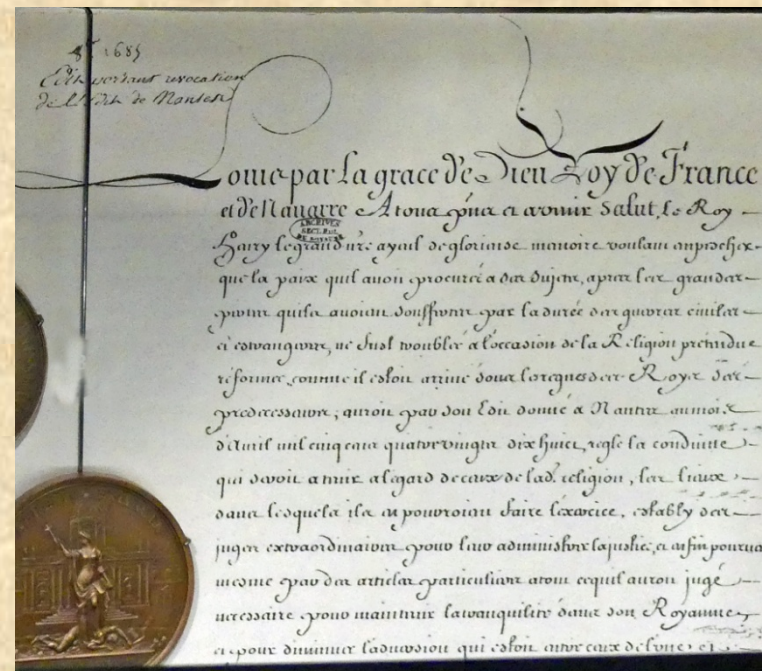 8bre 1685
Edit portant revocation
de l'Edit de Nantes
Louis par la grace de Dieu Roy de France
et de Navarre A tous p̃ns et avenir Salut, le Roy
ARCHIVES
SECT. HIST.
DU ROYAUME
Henry le grand nr̃e ayeul de glorieuse memoire voulant empescher
que la paix quil avoit procurée a ses Sujets, apres les grandes
pertes quils avoient Souffertes par la durée des guerres civiles
et estrangeres, ne fust troublée a l'occasion de la Religion pretendue
reformée, comme il estoit arrivé sous les regnes des Roys ses
predecesseurs, auroit par son Edit donné a Nantes au mois
d'Avril mil cinq cens quatre vingts dix huict, reglé la conduitte
qui devoit a tenir a legard de ceux de lad. religion, les lieux
dans lesquels ils en pourroient faire l'exercice, estably des
juges extraordinaires pour leur administrer la justice, et enfin pourvu
mesme par des articles particuliers a tout ce quil auroit jugé
necessaire pour maintenir la tranquilité dans son Royaume
et pour diminuer l'adversion qui estoit entre ceux de l'une et